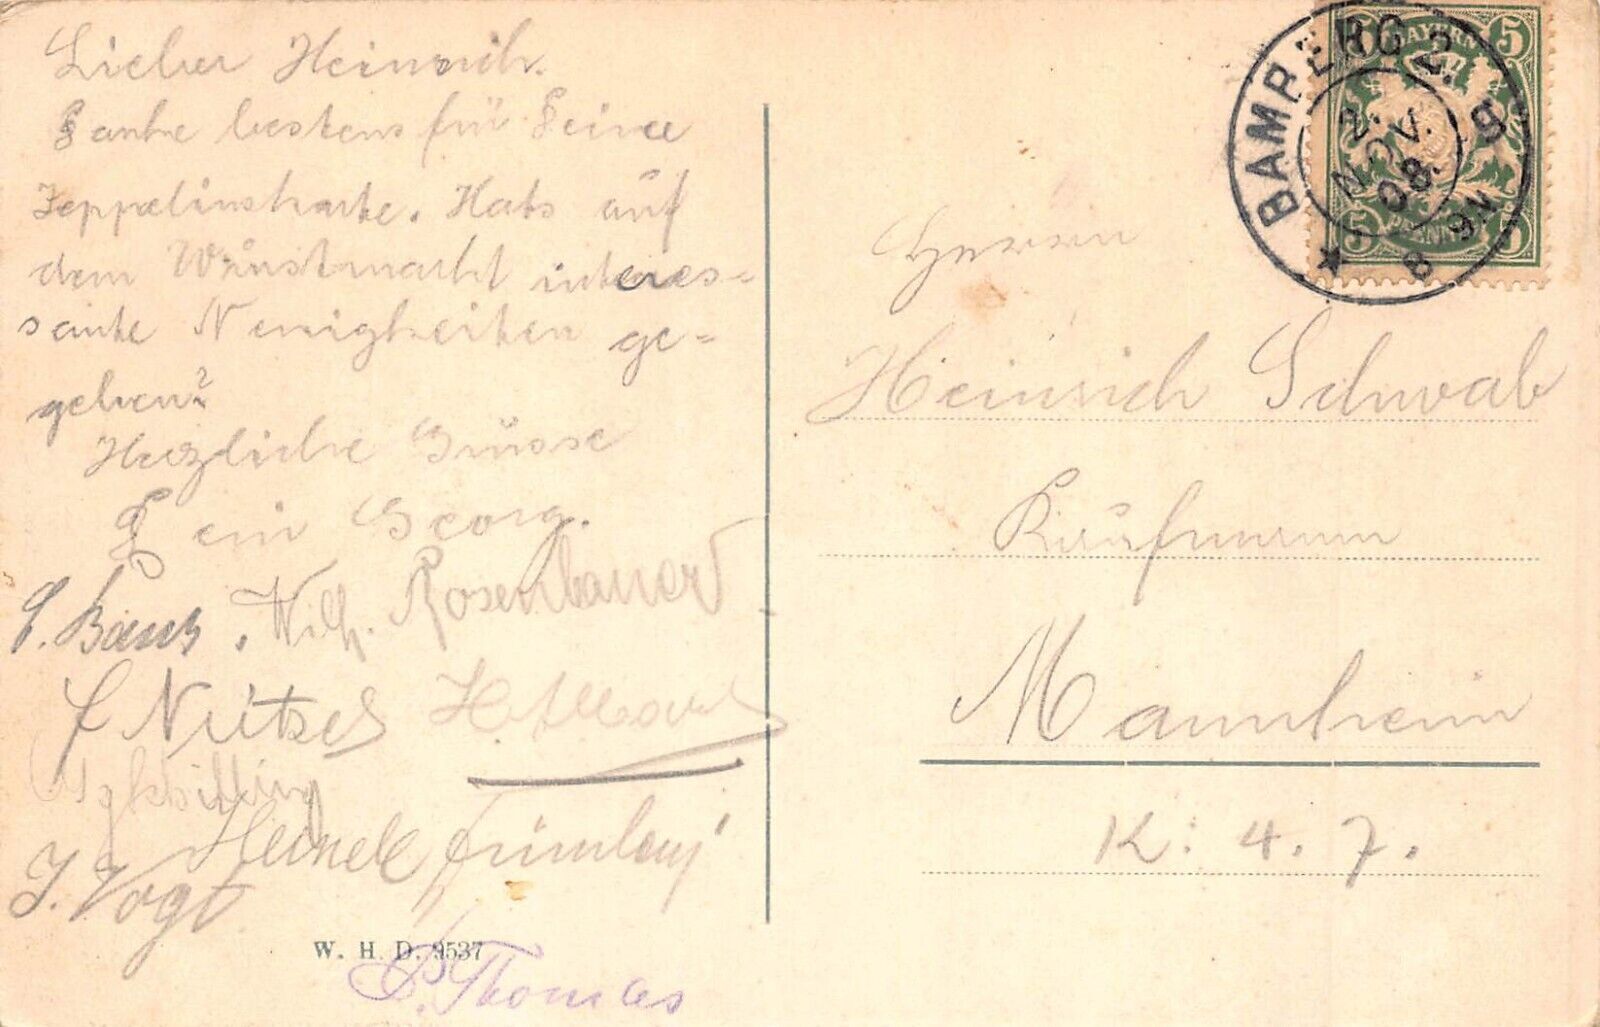 Lieber Heinrich.
Danke bestens für Deine
Zeppelinskarte. Hats auf
dem Wurstmarkt interes=
sante Neuigkeiten ge=
geben?
Herzliche Grüsse
Dein Georg.
Wilh. Rosenbauer
Nützel
Schilling
J. Vogt
W. H. D. 9537
P. Thomas
BAMBERG 2.
2. NOV. 08.
8 9N
BAYERN
5 5
5 PFENNIG 5
Herrn
Heinrich Schwab
Kaufmann
Mannheim
K. 4. 7.